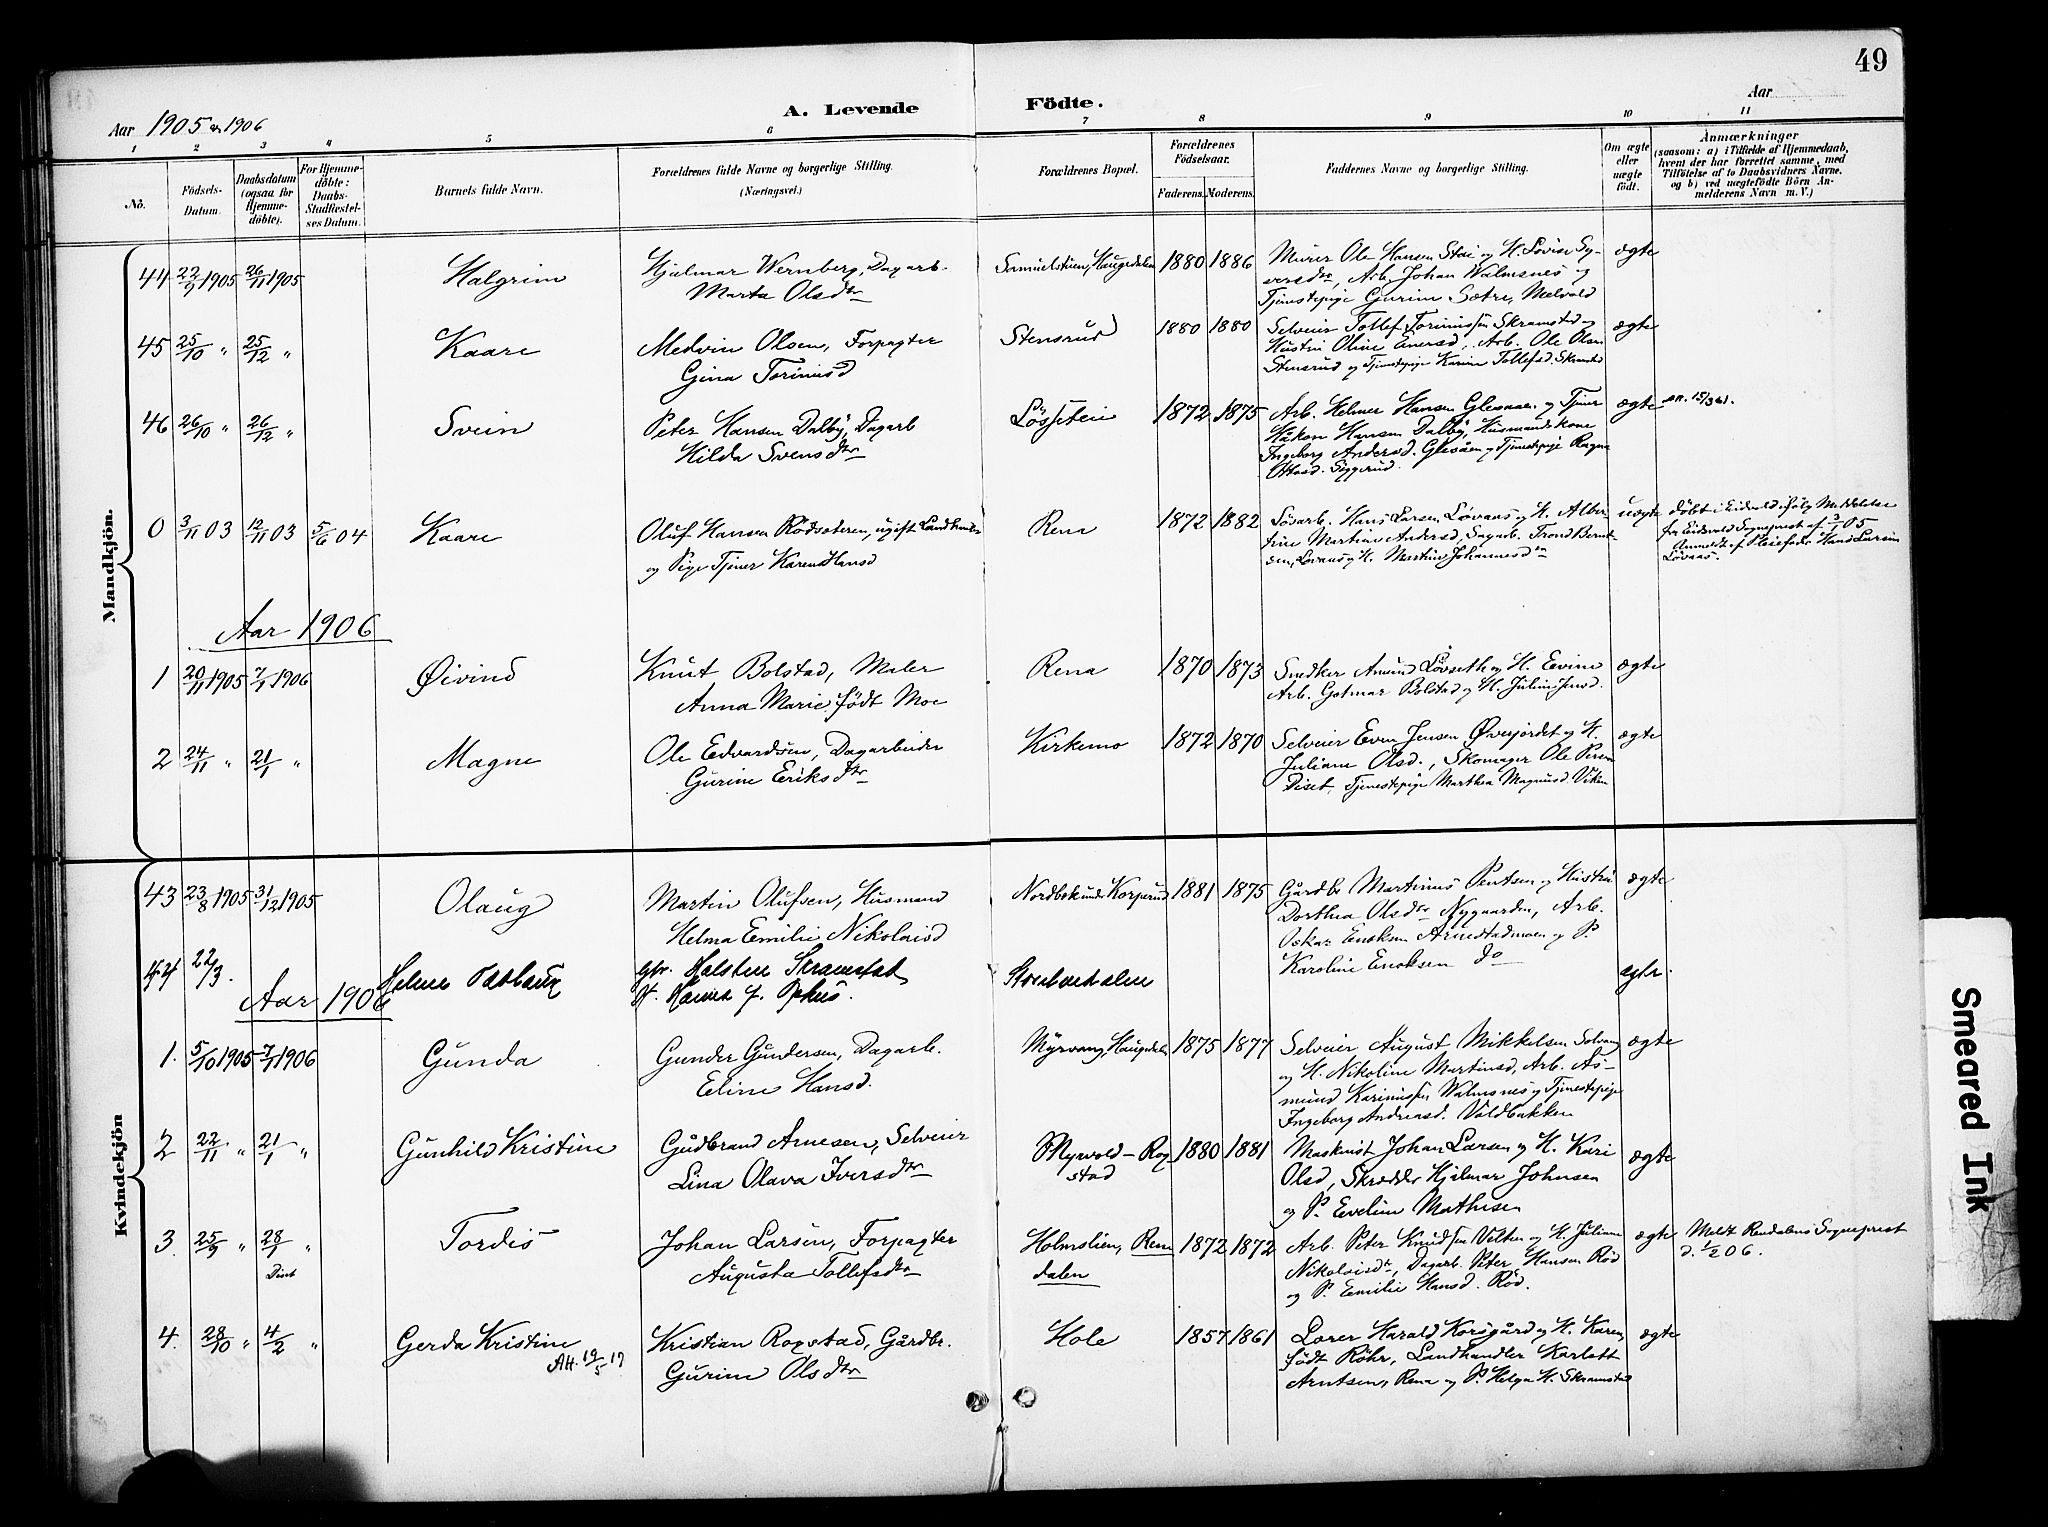 49
Aar 1905 og 1906
A. Levende Födte.
Aar
1 2 3 4 5 6 7 8 9 10 11
No.
Födsels-Datum.
Daabsdatum (ogsaa for Hjemmedöbte).
For Hjemmedöbte: Daabs-Stadfæstelses Datum.
Barnets fulde Navn.
Forældrenes fulde Navne og borgerlige Stilling.
(Næringsvei.)
Forældrenes Bopæl.
Forældrenes Födselsaar.
Faderens. Moderens.
Faddernes Navne og borgerlig Stilling.
Om ægte eller uægte födt.
Anmærkninger
(saasom: a) i Tilfælde af Hjemmedaab, hvem der har forrettet samme, med Tilföielse af to Daabsvidners Navne, og b) ved uægtefödte Börn Anmelderens Navn m. V.)
Mandkjön.
44 22/9 1905 26/11 1905 Halgrim Hjalmar Wernberg, Dagarb. Samuelstuen, Haugedalen 1880 1886 Murer Ole Hansen Stai og H. Lovise Sy- ægte
Marta Olsdtr versdtr, Arb. Johan Walmsnes og
Tjenestepige Gurine Sætre, Melvold
45 25/10 " 25/12 " Kaare Medvin Olsen, Forpagter Stensrud 1880 1880 Selveier Tollef Torinusen Skramstad og ægte
Gina Torinusd Hustru Oline Enersd, Arb. Ole Olsen
Stensrud og Tjenestepige Karine Tollefsd. Skramstad
46 26/10 " 26/12 " Svein Peter Hansen Dalby, Dagarb Lösseteie 1872 1875 Arb. Helmer Hansen Glesaaen og Tjener ægte
Hilda Svensdtr Håkon Hansen Dalby, Husmandskone
Ingeborg Andersd. Glesåen og Tjenestepige Ragna
Ottosd. Siggerud.
0 3/11 03 12/11 03 5/6 04 Kaare Oluf Hansen Rödsæteren, ugift Landhandler Rena 1872 1882 Lösarb. Hans Larsen Lövaas og H. Alber- uægte döbt i Eidsvold ifölg Meddelelse
og Pige Tjener Karen Hansd tine Martine Andersd, Sagarb. Trond Bernt- fra Eidsvold Sogneprest af 3/1 05
sen, Lövaas og H. Martine Johannesdtr Anmeldt af Pleiefader Hans Larsen
Lövaas.
Aar 1906
1 20/11 1905 7/1 1906 Øivind Knut Bolstad, Maler Rena 1870 1873 Snedker Amund Lövseth og H. Evine ægte
Anna Marie födt Moe Arb. Gotmar Bolstad og H. Juline Jensd.
2 24/11 " 21/1 " Magne Ole Edvardsen, Dagarbeider Kirkemo 1872 1870 Selveier Even Jensen Øverjordet og H. ægte
Gurine Eriksdtr Juliane Olsd., Skomager Ole Persen
Diset, Tjenestepige Marthea Magnusd. Viken
Kvindekjön
43 23/8 1905 31/12 1905 Olaug Martin Olufsen, Husmand Nordbekunde Korperud 1881 1875 Gårdbr Martinus Pentsen og Hustru ægte
Helma Emilie Nikolaisd Dorthea Olsdtr Nygaarden, Arb.
Oskar Enoksen Arnestadmoen og P.
Karoline Enoksen do
44 22/3. Gbr. Halsten Skramstad ægte.
Aar 1906
1. 5/10 1905 7/1 1906 Gunda Gunder Gundersen, Dagarb. Myrvang, Haugedalen 1875 1877 Selveier August Mikkelsen Solvang ægte
Eline Hansd. og H. Nikoline Martinsd, Arb. As-
mund Karinusen Walmsnes og Tjenestepige
Ingeborg Andreasd. Voldbakken
2 22/11 " 21/1 " Gunhild Kristine Gudbrand Arnesen, Selveier Myrvold-Rog- 1880 1881 Maskinist Johan Larsen og H. Kari ægte
Lina Olava Iversdtr stad Olsd, Skrædder Hjalmar Johnsen
og P. Eveline Mathisen
3. 25/9 " 28/1 " Tordis Johan Larsen, Forpagter Holmslien, Ren- 1872 1872 Arb. Peter Knudsen Velten og H. Juliane ægte Meldt Rendalens Sogneprest
Augusta Tollefsdtr dalen Nikolaisdtr, Dagarb. Peter Hansen Röd d. 1/2 06.
og P. Emilie Hansd. Röd.
4. 28/10 " 4/2 " Gerda Kristine Kristian Rogstad, Gårdbr. Hole 1857 1861 Lærer Harald Korsgård og H. Karen ægte
Att. 19/5 17 Gurine Olsdtr födt Röhr, Landhandler Karlott
Arntsen, Rena og P. Helga H. Skramstad
Smeared Ink